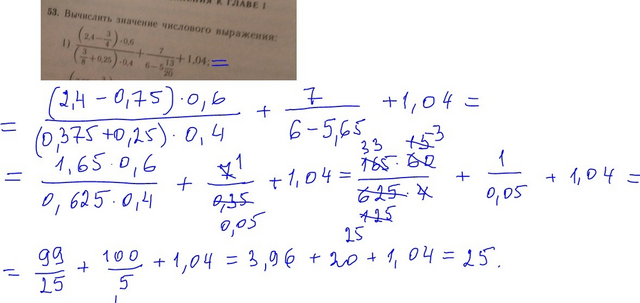 К ГЛАВЕ I
53. Вычислить значение числового выражения:
1) ((2,4−3/4)·0,6)/((3/8+0,25)·0,4) + 7/(6−5 13/20) + 1,04; =
= ((2,4−0,75)·0,6)/((0,375+0,25)·0,4) + 7/(6−5,65) + 1,04 =
= (1,65·0,6)/(0,625·0,4) + 7 1/(0,35 0,05) + 1,04 = (33 165·60 15 3)/(625·4 125 25) + 1/0,05 + 1,04 =
= 99/25 + 100/5 + 1,04 = 3,96 + 20 + 1,04 = 25.